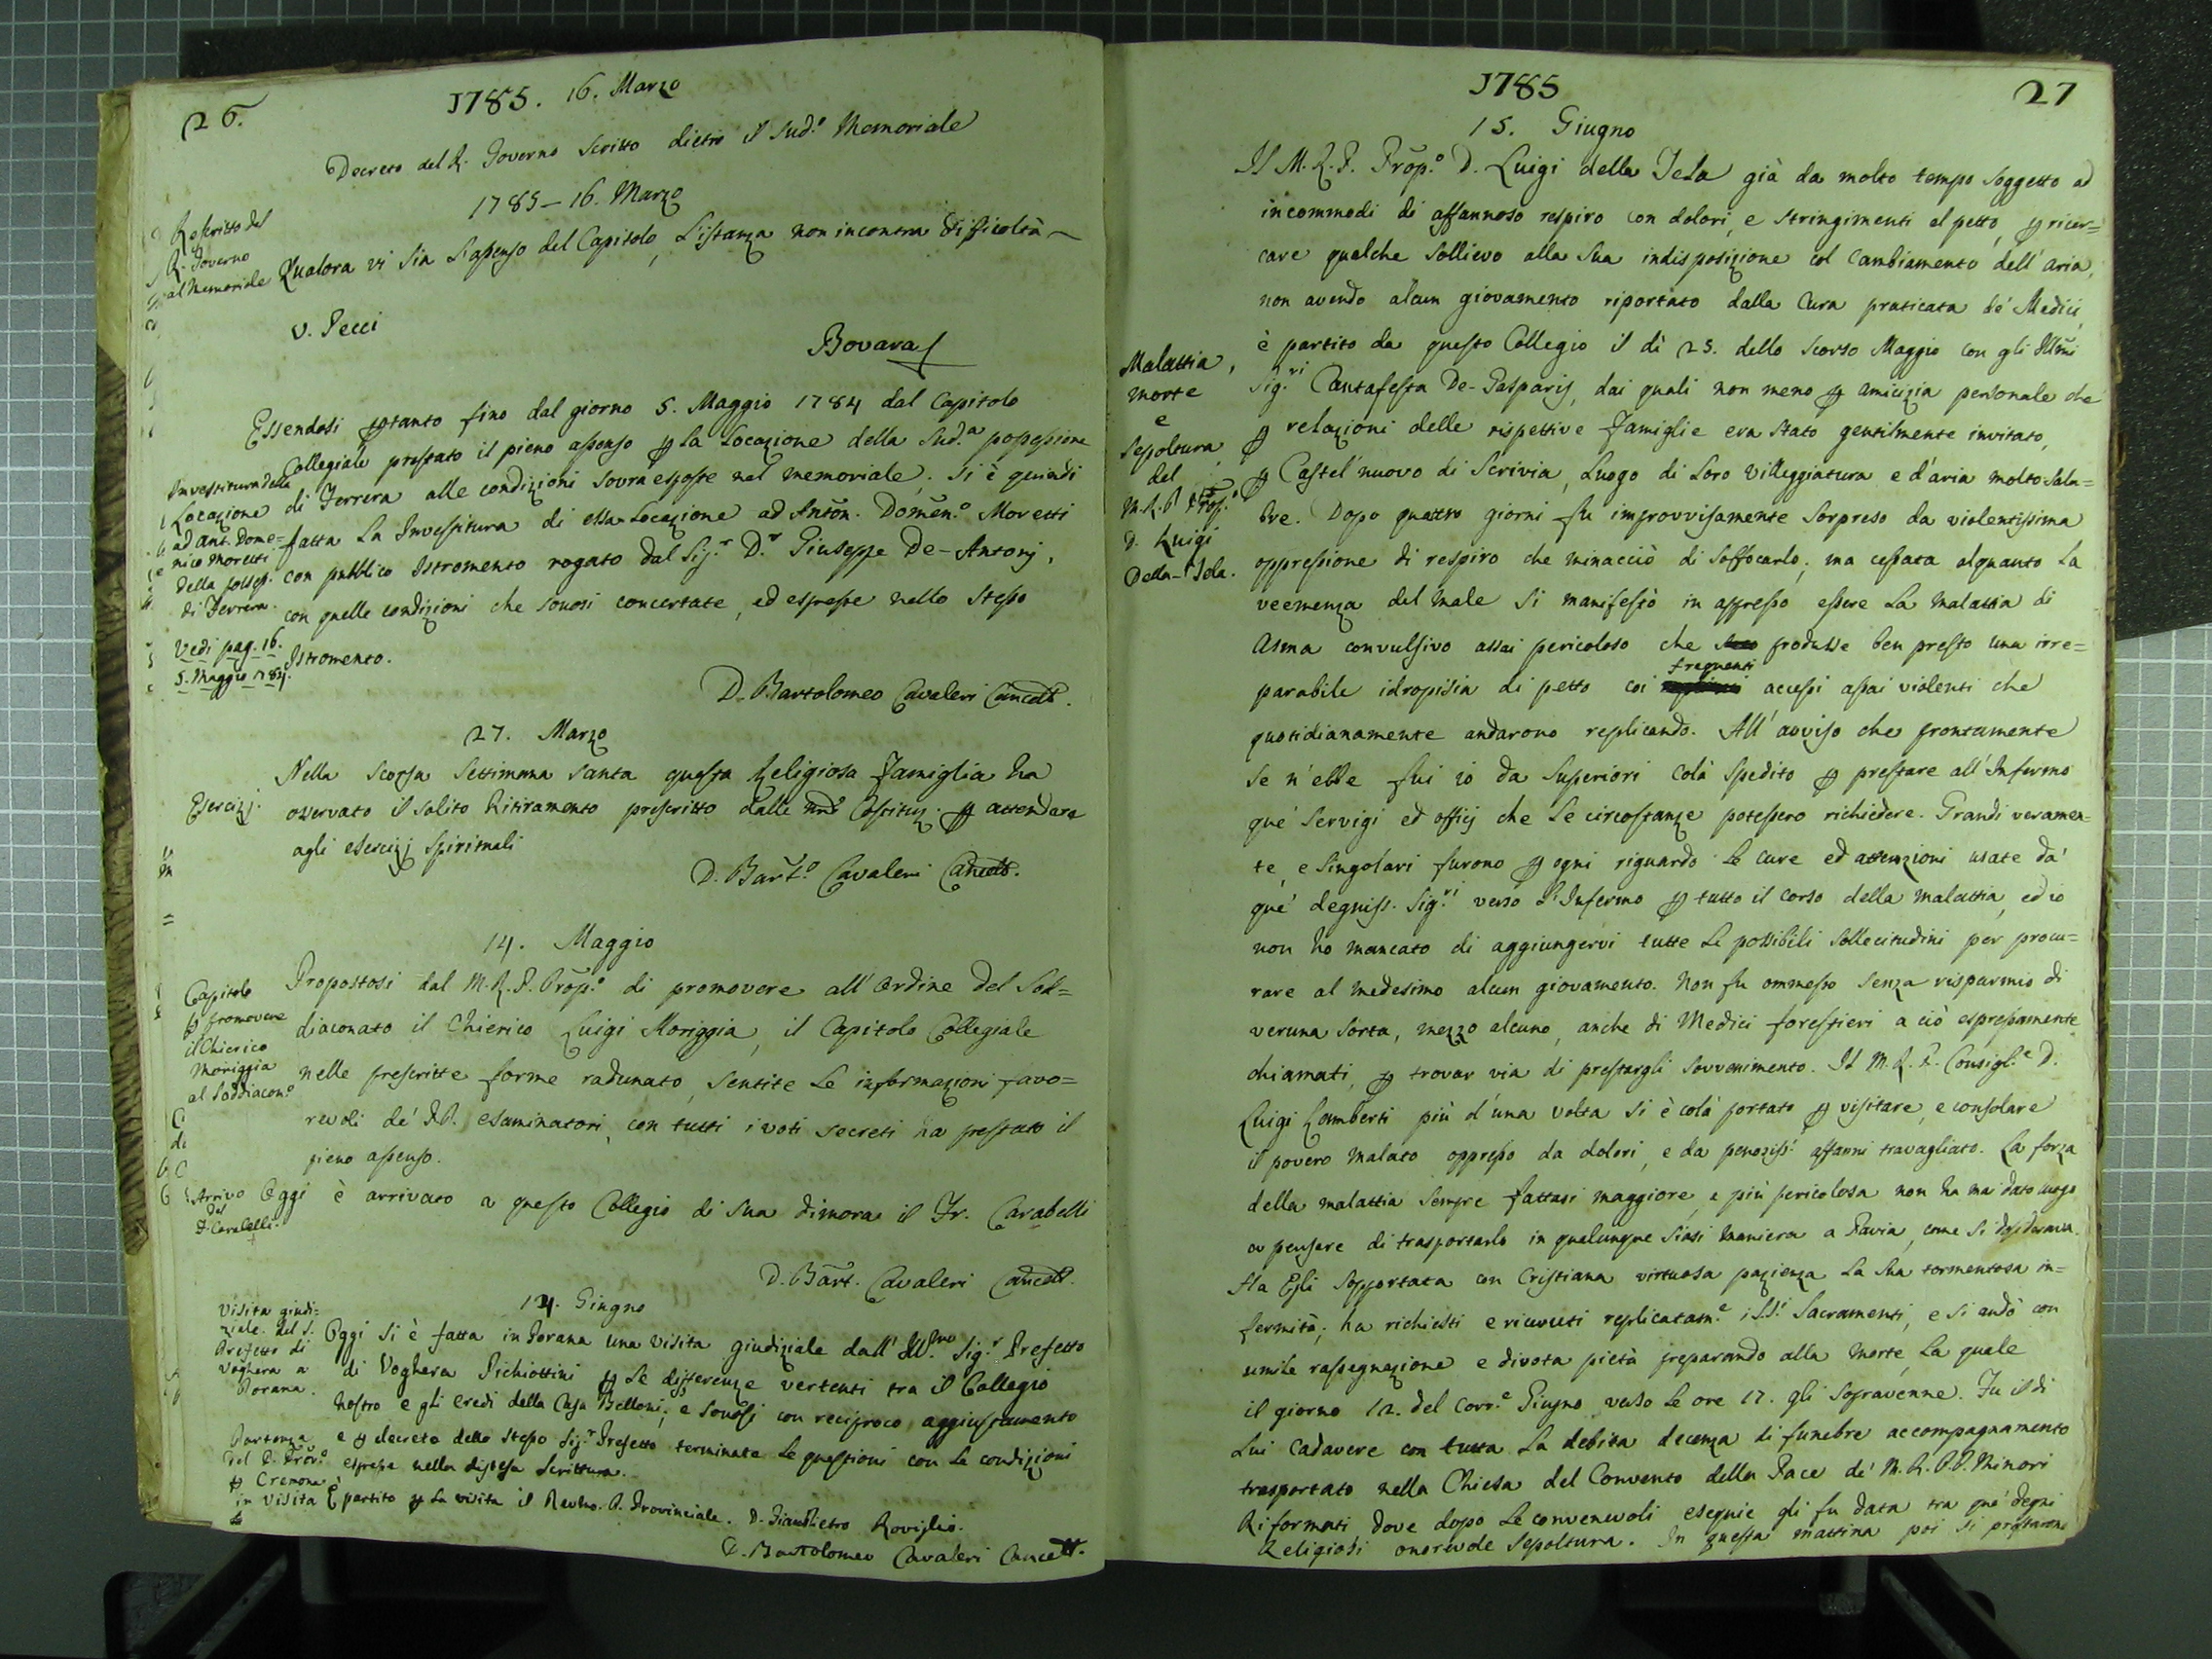 26.
1785. 16. Marzo
Decreto del R. Governo scritto dietro il sud.º Memoriale
1785 - 16. Marzo
Rescritto del
R. Governo
al Memoriale
Qualora vi sia l'assenso del Capitolo, l'istanza non incontra difficoltà
V. Pecci
Bovara
Essendosi ꝑtanto fino dal giorno 5. Maggio 1784 dal Capitolo
Collegiale prestato il pieno assenso ꝑ la Locazione della Sud.ª possessione
di Ferrera alle condizioni sovra esposte nel memoriale; si è quindi
fatta la Investitura di essa Locazione ad Anton. Domen.º Moretti
con pubblico Istromento rogato dal Sig.r D.r Giuseppe De-Antonj,
con quelle condizioni che sonosi concertate, ed espresse nello stesso
Istromento.
Investitura della
Locazione
ad Ant. Dome=
nico Moretti
della posses.
di Ferrera.
Vedi pag. 16.
5. Maggio 1784.
D. Bartolomeo Cavaleri Cancell.
27. Marzo
Esercizj.
Nella scorsa Settimana santa questa Religiosa famiglia ha
osservato il solito Ritiramento prescritto dalle nrẽ Costituz. ꝑ attendere
agli esercizj spirituali
D. Bart.º Cavaleri Cancell.
14. Maggio
Capitolo
ꝑ promovere
il Chierico
Moriggia
al Soddiacon.º
Propostosi dal M. R. P. Prop.º di promovere all'Ordine del Sod=
diaconato il Chierico Luigi Moriggia, il Capitolo Collegiale
nelle prescritte forme radunato, sentite le informazioni favo=
revoli de' PP. esaminatori, con tutti i voti secreti ha prestato il
pieno assenso.
Arrivo
del
F. Carabelli.
Oggi è arrivato a questo Collegio di sua dimora il Fr. Carabelli
D. Bart. Cavaleri Cancell.
14. Giugno
Visita giudi=
ziale del S.
Prefetto di
Voghera a
Porana.
Oggi si è fatta in Porana una visita giudiziale dall' Ill.mo Sig.r Prefetto
di Voghera Pichiottini ꝑ le differenze vertenti tra il Collegio
nostro e gli eredi della Casa Belloni; e sonosi con reciproco aggiustamento
e ꝑ decreto dello stesso Sig.r Prefetto terminate le questioni con le condizioni
espresse nella distesa scrittura.
Partenza
del P. Prov.º
ꝑ Cremona
in Visita
È partito ꝑ la visita il Revmo. P. Provinciale. D. Gian Pietro Roviglio.
D. Bartolomeo Cavaleri Cancell.
1785
27
15. Giugno
Il M. R. P. Prop.º D. Luigi della Tela già da molto tempo soggetto ad
incommodi di affannoso respiro con dolori, e stringimenti al petto, ꝑ ricer=
care qualche sollievo alla sua indisposizione col cambiamento dell'aria,
non avendo alcun giovamento riportato dalla cura praticata de' Medici,
è partito da questo Collegio il dì 25. dello scorso Maggio con gli Illmi
Sig.ri Cantafesta De-Gasparis, dai quali non meno ꝑ amicizia personale che
ꝑ relazioni delle rispettive famiglie era stato gentilmente invitato,
ꝑ Castel'nuovo di Scrivia, Luogo di loro villeggiatura e d'aria molto salu=
bre. Dopo quattro giorni fu improvvisamente sorpreso da violentissima
oppressione di respiro che minacciò di soffocarlo; ma cessata alquanto la
veemenza del male si manifestò in appresso essere la malattia di
Asma convulsivo assai pericoloso che produsse ben presto una irre=
parabile idropisia di petto coi frequenti accessi assai violenti che
quotidianamente andarono replicando. All'avviso che prontamente
se n'ebbe fui io da Superiori colà spedito ꝑ prestare all'Infermo
que' servigi ed officj che le circostanze potessero richiedere. Grandi veramen=
te, e singolari furono ꝑ ogni riguardo le cure ed attenzioni usate da'
que' degniss. Sig.ri verso l'Infermo ꝑ tutto il corso della malattia, ed io
non ho mancato di aggiungervi tutte le possibili sollecitudini per procu=
rare al medesimo alcun giovamento. Non fu ommesso senza risparmio di
veruna sorta, mezzo alcuno, anche di Medici forestieri a ciò espressamente
chiamati, ꝑ trovar via di prestargli sovvenimento. Il M. R. P. Consigl.e D.
Luigi Lamberti più d'una volta si è colà portato ꝑ visitare, e consolare
il povero malato oppresso da dolori, e da penosiss.i affanni travagliato. La forza
della malattia sempre fattasi maggiore, e più pericolosa non ha mai dato luogo
a pensare di trasportarlo in qualunque siasi maniera a Pavia, come si desiderava.
Ha Egli sopportata con Cristiana virtuosa pazienza la sua tormentosa in=
fermità; ha richiesti e ricevuti replicatam.e i SS.i Sacramenti, e si andò con
umile rassegnazione e divota pietà preparando alla morte, la quale
il giorno 12. del corr.e Giugno verso le ore 17. gli sopravenne. Fu il di
lui cadavere con tutta la debita decenza di funebre accompagnamento
trasportato nella Chiesa del Convento della Pace de' M. R. P.P. Minori
Riformati, dove dopo le convenevoli esequie gli fu data tra que' degni
Religiosi onorevole sepoltura. In questa mattina poi si prestarono
Malattia,
morte
e
Sepoltura
del
M. R. P. Prop.º
D. Luigi
Della-Tela.